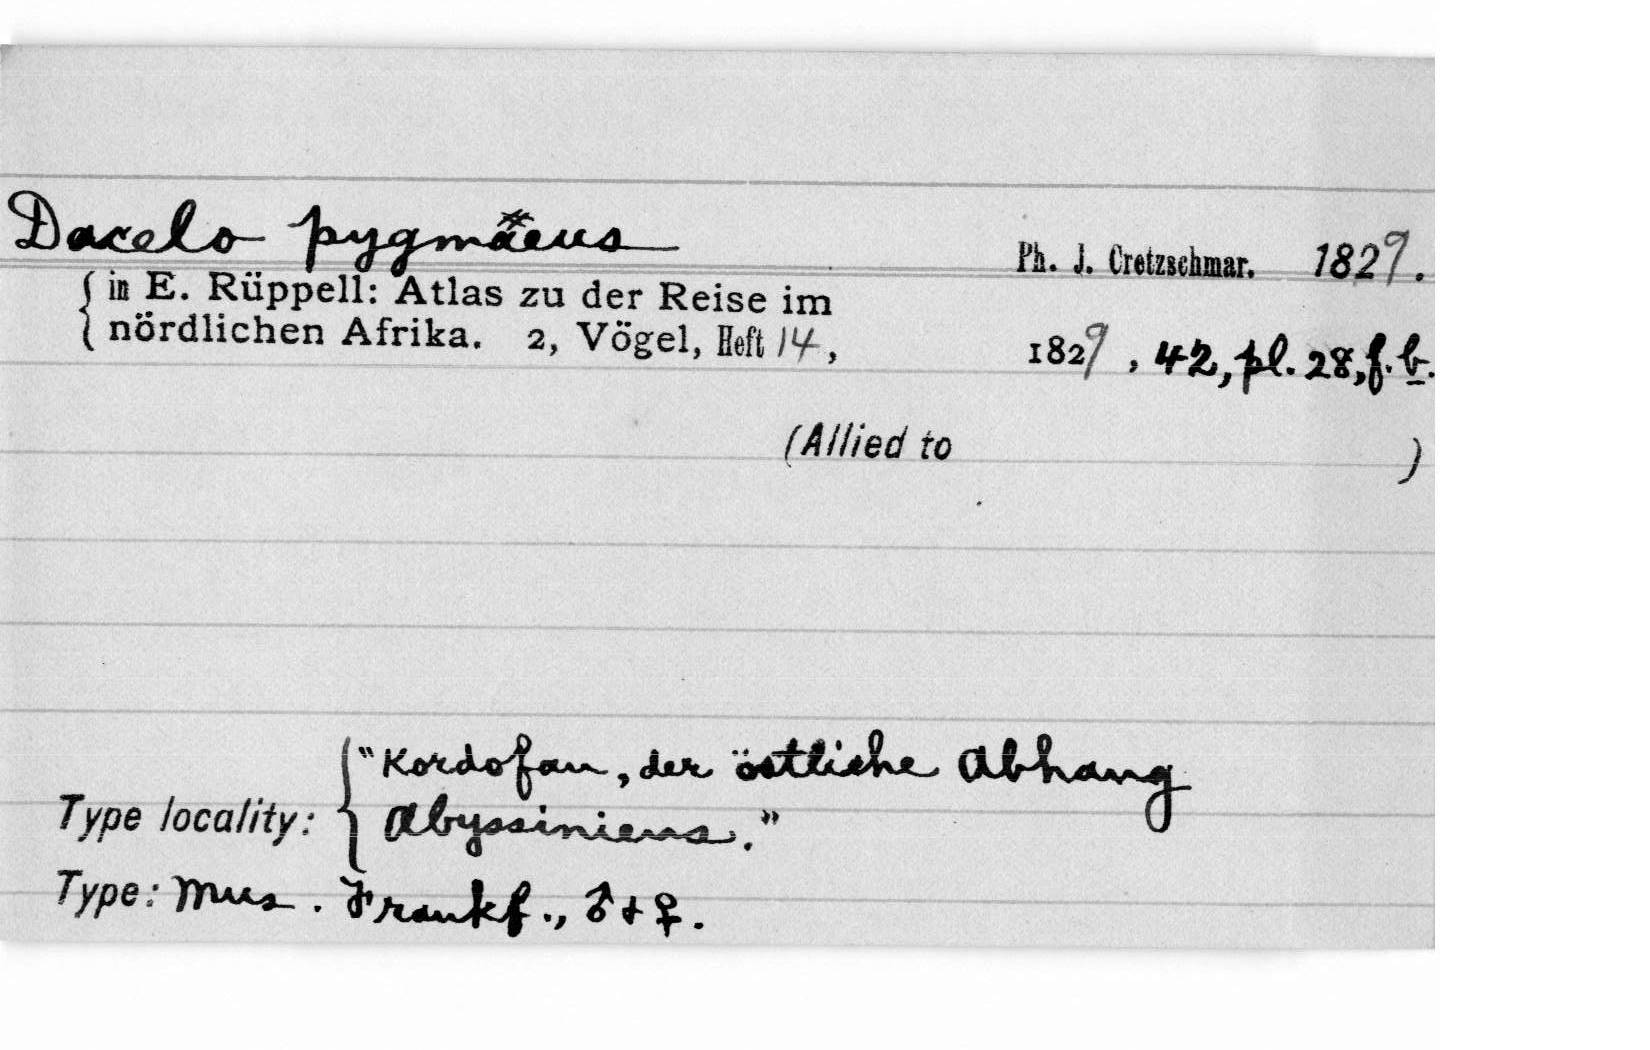 Dacelo pygmäeus
Ph. J. Cretzschmar. 1829.
in E. Rüppell: Atlas zu der Reise im
nördlichen Afrika. 2, Vögel, Heft 14, 1829, 42, pl. 28, f. b.
(Allied to )
"Kordofan, der östliche Abhang
Type locality: Abyssiniens."
Type: Mus. Frankf., ♂ + ♀.